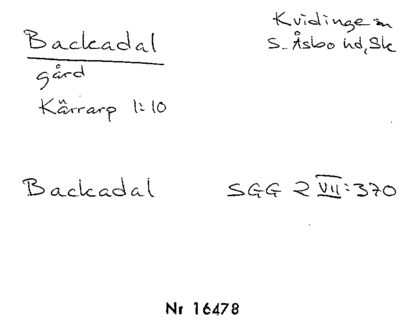 Backadal
gård
Kärrarp 1:10
Kvidinge sn
S. Åsbo hd, Sk
Backadal SGG 2 VII:370
Nr 16478